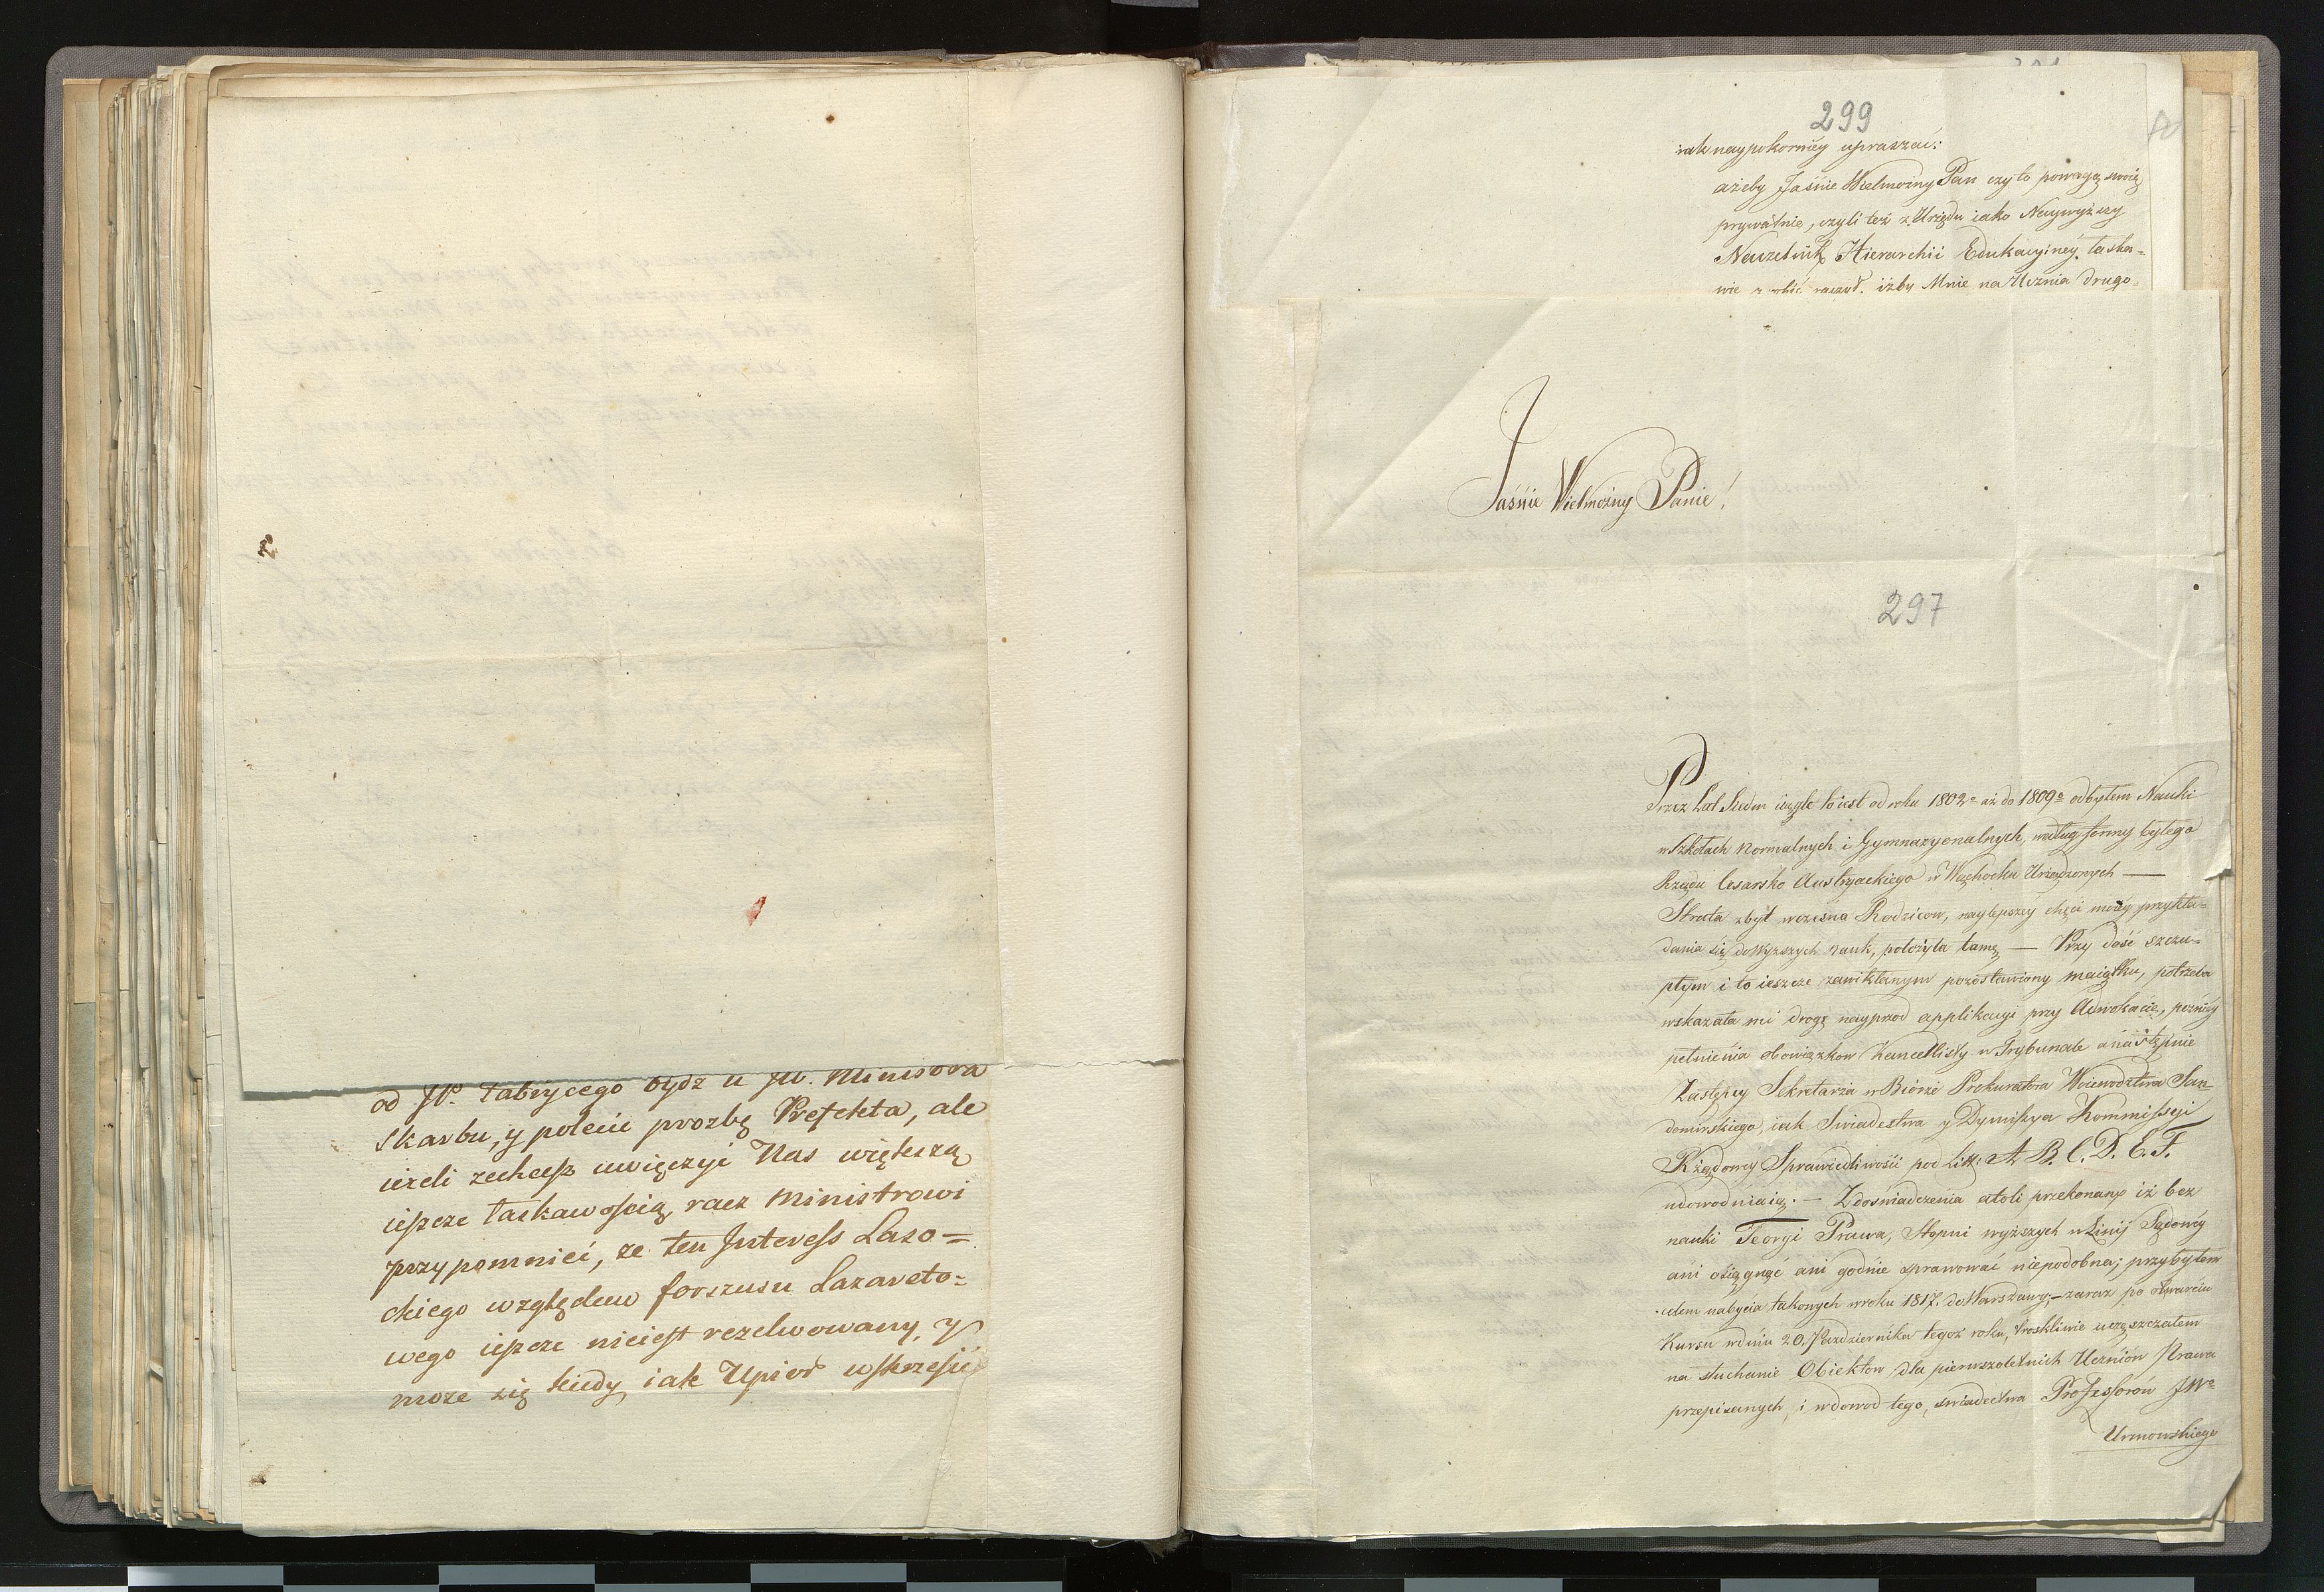 od JP. Fabrycego bydz u JW. Ministra
skarbu, y polecic prozbę Prefekta, ale
ieżeli zechcesz uwięczyć Nas większą
ieszcze łaskawością, racz Ministrowi
przypomnieć, że ten Interess Lazo=
ckiego względem forszusu Lazareto=
wego ieszcze nieiest rezelwowany, y
może się kiedy iak Upior wskrzesić
299
iak naypokorniéy upraszać:
ażeby Jaśnie Wielmożny Pan czy to powagą swoią
prywatnie, czyli też z Urzędu iako Naywyższy
Naczelnik Hierarchii Edukacyinéy, łaska=
wie zrobić raczył, iżby Mnie na Ucznia drugo=
Jaśnie Wielmożny Panie!
297
Przez Lat Siedm ciągle to iest od roku 1802o aż do 1809o odbyłem Nauki
w Szkołach Normalnych i Gymnazyonalnych, według formy byłego
Rządu Cesarsko Austryackiego w Wąchocku Urządzonych —
Strata zbyt wczesna Rodzicow, naylepszéy chęci moiéy przykła=
dania się do Wyższych Nauk, położyła tamę — Przy dość szczu=
płym i to ieszcze zawikłanym pozostawiony maiątku, potrzeba
wskazała mi drogę nayprzod applikacyi przy Adwokacie, poźniéy
pełnienia obowiązkow Kancellisty w Trybunale a następnie
Zastępcy Sekretarza w Biórze Prokuratora Woiewodztwa San=
domirskiego, iak Swiadectwa y Dymissya Kommissyi
Rządowéy Sprawiedliwości pod Litt: A. B. C. D. E. F.
udowodniaią. — Z doswiadczenia atoli przekonany iż bez
nauki Teoryi Prawa, Stopni wyższych w Linij Sądowéy
ani osiągnąć ani godnie sprawować niepodobna; przybyłem
celem nabycia takowych w roku 1817. do Warszawy; — zaraz po otwarciu
Kursu w dniu 20. Pazdziernika tegoż roku, troskliwie uczęszczałem
na słuchanie Obiektow dla pierwszoletnich Uczniów Prawa
przepisanych, i w dowod tego, swiadectwa Professorów JWo
Urmowskiego